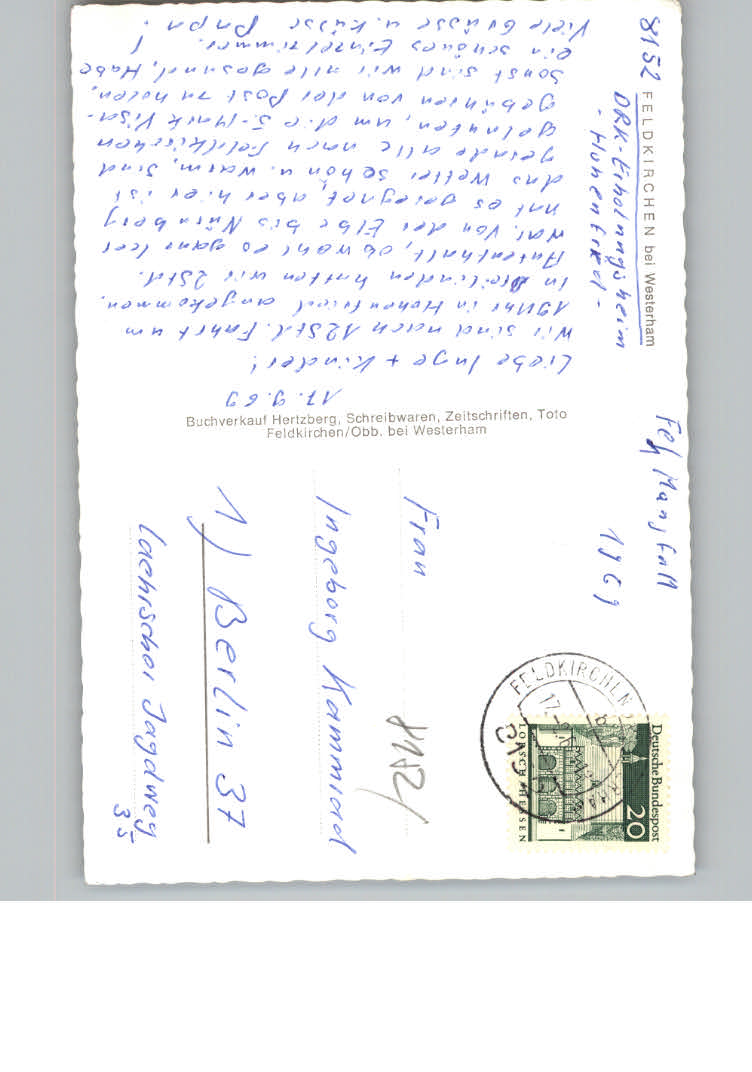 8152 FELDKIRCHEN bei Westerham
DRK-Erholungsheim
- Hohenfried -
17.9.69
Liebe Inge + Kinder!
Wir sind nach 12 Std. Fahrt um
19 Uhr in Hohenfried angekommen.
In Dreilinden hatten wir 2 Std.
Aufenthalt, obwohl es ganz leer
war. Von der Elbe bis Nürnberg
hat es geregnet, aber hier ist
das Wetter schön u. warm, sind
gerade alle nach Feldkirchen
gelaufen, um d. e. 5-Mark Visa-
gebühren von der Post zu holen.
Sonst sind wir alle gesund, Habe
ein schönes Einzelzimmer!
Viele Grüsse u. Küsse Papa.
Buchverkauf Hertzberg, Schreibwaren, Zeitschriften, Toto
Feldkirchen/Obb. bei Westerham
Mangfall
1969
FELDKIRCHEN
17.9.
8152
Deutsche Bundespost
20
LORSCH/HESSEN
Frau
Ingeborg Kammrad
1) Berlin 37
Laehrscher Jagdweg
35